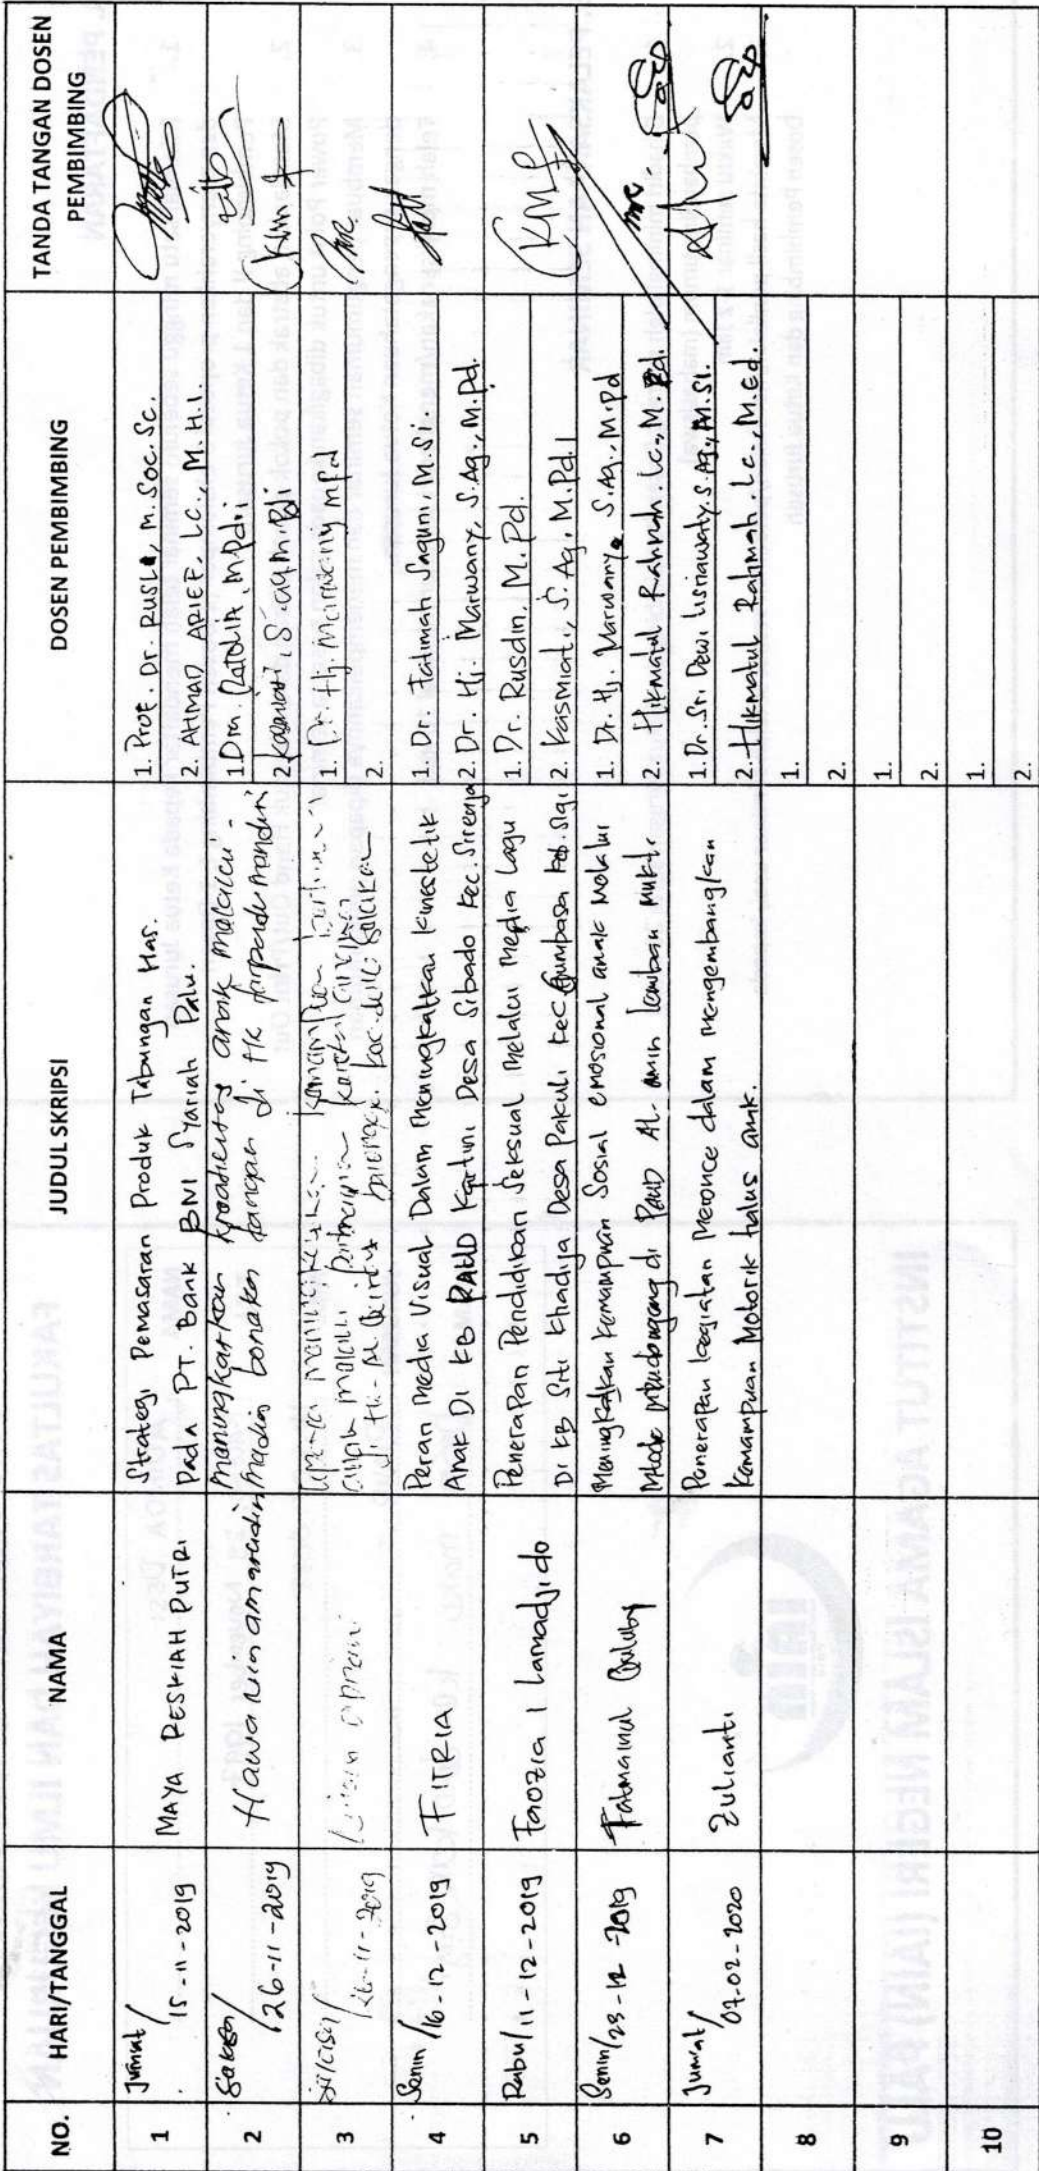 NO.
HARI/TANGGAL
NAMA
JUDUL SKRIPSI
DOSEN PEMBIMBING
TANDA TANGAN DOSEN
PEMBIMBING
1
Jumat/
15-11-2019
MAYA RESKIAH PUTRI
Strategi Pemasaran Produk Tabungan Has.
Pada PT. Bank BNI Syariah Palu.
1. Prof. Dr. RUSLI, M.Soc.Sc.
2. AHMAD ARIEF, LC., M.H.I.
2
Selasa/
26-11-2019
Hawa
meningkatkan kreativitas anak melalui
media boneka tangan di TK
1. Dra. M.Pd.i
2. Kasmiati, S.ag.M.Pdi
3
Selasa/
26-11-2019
anak melalui permainan
1. Dr. Hj. Marwany M.Pd
2.
4
Senin/16-12-2019
FITRIA
Peran Media Visual Dalam Meningkatkan Kinestetik
Anak Di KB PAUD Kartini Desa Sibado Kec. Sirenja
1. Dr. Fatimah Saguni, M.Si.
2. Dr. Hj. Marwany, S.Ag., M.Pd.
5
Rabu/11-12-2019
Faozia I Lamadjido
Penerapan Pendidikan Seksual Melalui Media Lagu
Di KB Siti Khadija Desa Pakuli Kec. Gumbasa Kab. Sigi
1. Dr. Rusdin, M.Pd.
2. Kasmiati, S.Ag., M.Pd.I
6
Senin/23-12-2019
Meningkatkan Kemampuan Sosial emosional anak Melalui
Metode Mendongeng di PAUD AL-amin
1. Dr. Hj. Marwany, S.Ag., M.Pd
2. Hikmatul Rahmah. Lc., M.Ed.
7
Jumat/
07-02-2020
Zulianti
Penerapan kegiatan Meronce dalam mengembangkan
Kemampuan Motorik halus anak.
1. Dr. Sri Dewi Lisnawaty, S.Ag., M.Si.
2. Hikmatul Rahmah. Lc., M.Ed.
8
1.
2.
9
1.
2.
10
1.
2.